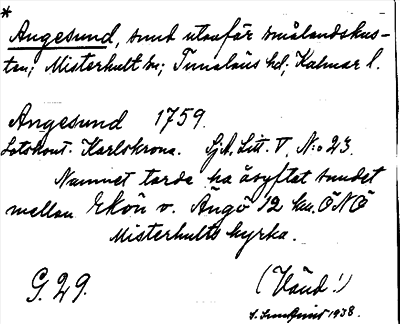 *
Angesund, sund utanför smålandskus-
ten; Misterhult sn; Tunaläns hd; Kalmar l.
Angesund 1759.
Lotskont. Karlskrona. SjA, Litt. V, N:o 23.
Namnet torde ha åsyftat sundet
mellan Ekön o. Ängö 12 km. ÖNÖ
Misterhults kyrka.
G. 29.
(Vänd!)
1938.